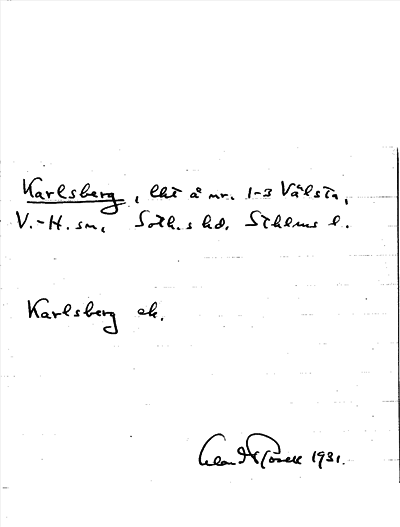 Karlsberg, lht å nr. 1-3 Välsta,
V.-H. sn, Soth.s hd. Sthlms l.
Karlsberg ek.
1931.